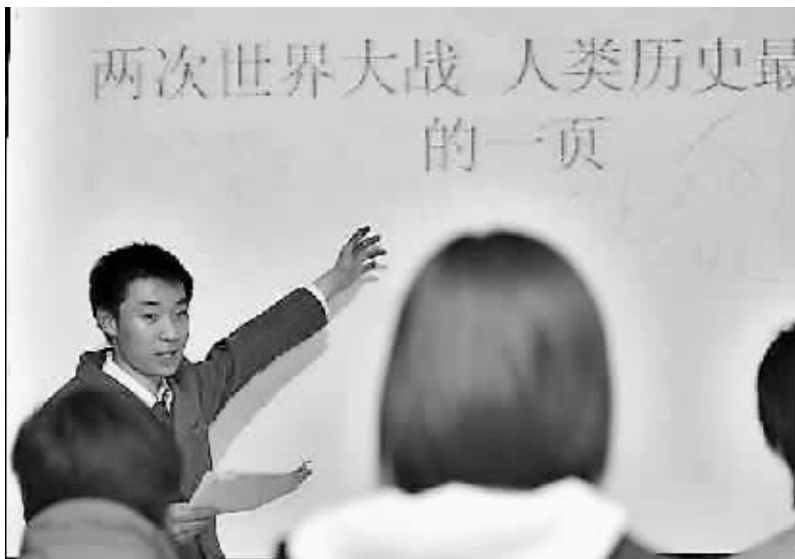 两次世界大战 人类历史最
的一页